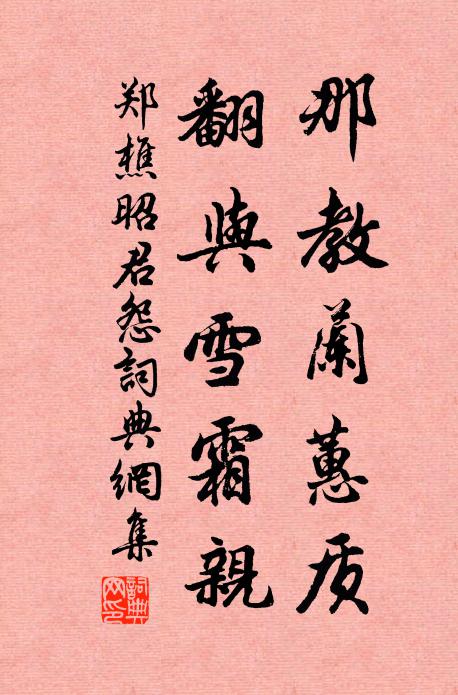 那教蘭蕙质
翻與雪霜親
郑樵昭君怨詞典網集
詞典网印